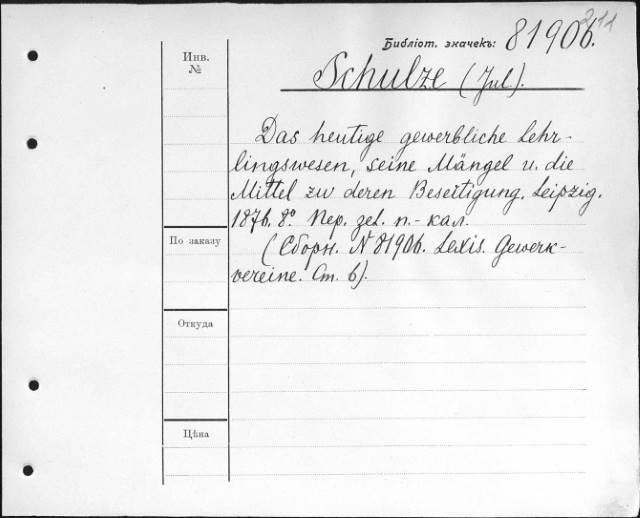 211
Библіот. значекъ: 81906.
Инв.
№
Schulze (Jul.).
Das heutige gewerbliche Lehr-
lingswesen, seine Mängel u. die
Mittel zu deren Beseitigung. Leipzig.
1876. 8º. Пер. zel. п.-кал.
(Сборн. N 81906. Lexis. Gewerk-
vereine. Ст. 6).
По заказу
Откуда
Цѣна